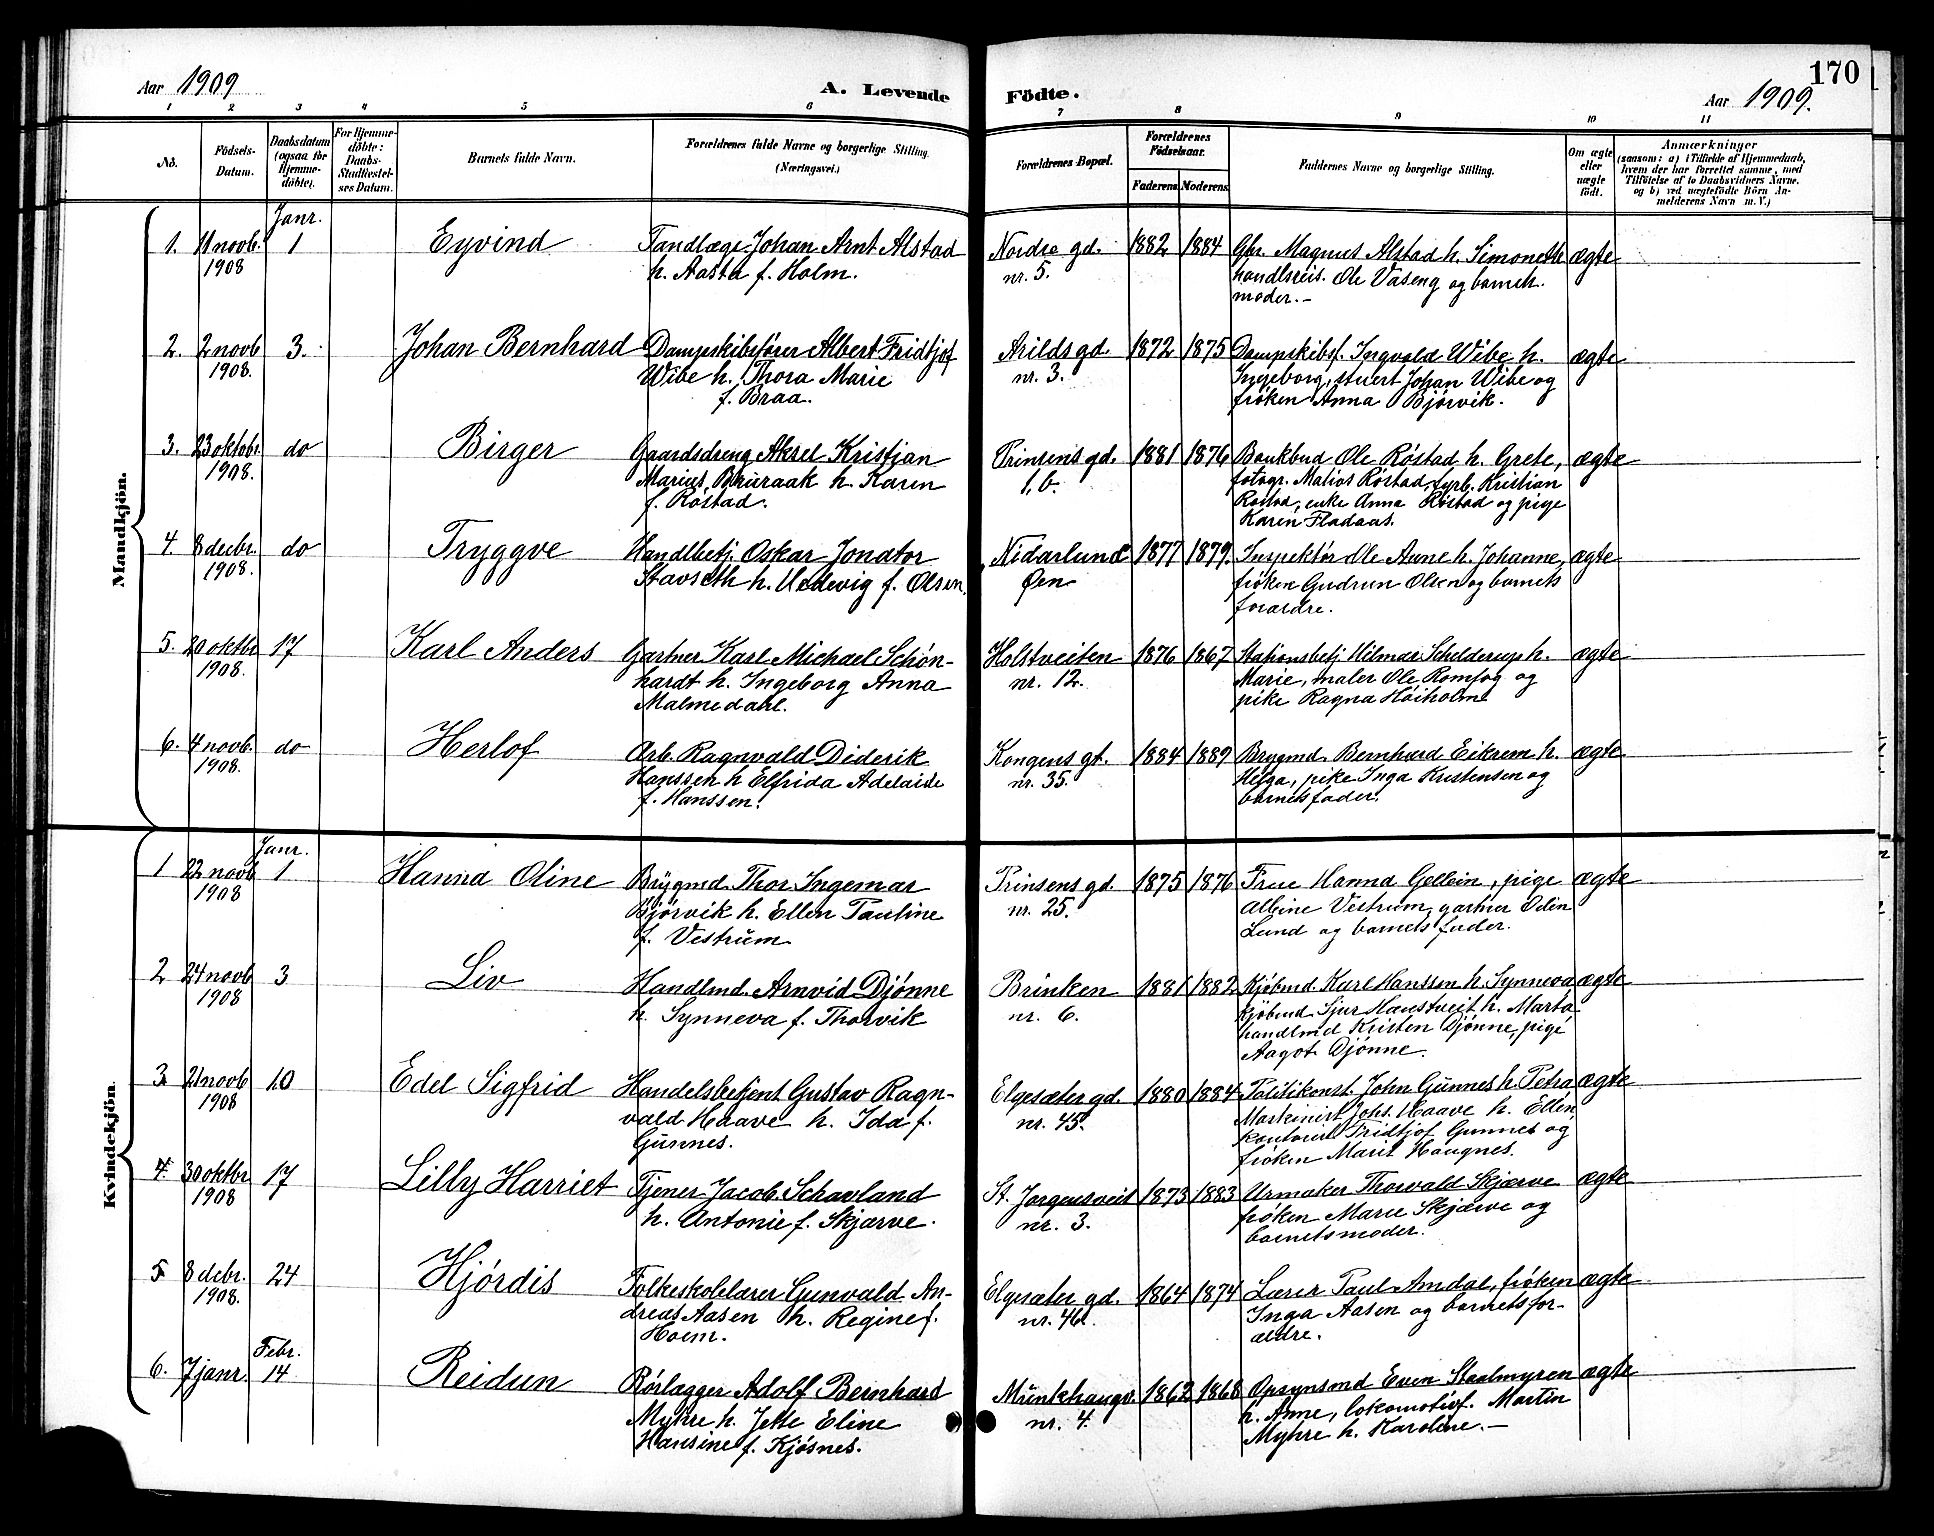 Aar 1909
A. Levende
Födte.
170
Aar 1909.
1 2 3 4 5 6 7 8 9 10 11
No.
Födsels-
Datum.
Daabsdatum
(ogsaa for
Hjemme-
döbte).
For Hjemme-
döbte:
Daabs-
Stadfæstel-
ses Datum.
Barnets fulde Navn.
Forældrenes fulde Navne og borgerlige Stilling.
(Næringsvei.)
Forældrenes Bopæl.
Forældrenes
Födselsaar.
Faderens. Moderens.
Faddernes Navne og borgerlige Stilling.
Om ægte
eller
uægte
födt.
Anmærkninger
(saasom: a) i Tilfælde af Hjemmedaab,
hvem der har forrettet samme, med
Tilföielse af to Daabsvidners Navne.
og b) ved uægtefödte Börn An-
melderens Navn m. V.)
Mandkjön.
Janr.
1. 11 novb. 1 Eyvind Tandlæge Johan Arnt Alstad Nordre gd. 1882 1884 Gbr. Magnus Alstad h. Simonette ægte
1908 h. Aasta f. Holm. nr. 5. handlsreis. Ole Vaseng og barnets
moder.-
2. 2 novb 3. Johan Bernhard Dampskibsfører Albert Fridtjof Arilds gd. 1872 1875 Dampskibsf. Ingvald Wibe h. ægte
1908. Wibe h. Thora Marie nr. 3. Ingeborg, stuert Johan Wibe og
f. Braa. frøken Anna Bjørvik.
3. 23 oktobr. do Birger Gaardsdreng Aksel Kristjan Prinsens gd. 1881 1876 Bankbud Ole Røstad h. Grete, ægte
1908. Marius Bruraak h. Karen 1, b. fotogr. Matios Røstad, fyrb. Kristian
f. Røstad. Røstad, enke Anna Røstad og pige
Karen Fladaas.
4. 8 decbr. do Tryggve Handlbetj. Oskar Jonator Nidarlund 1877 1879. Inspektør Ole Aune h. Johanne, ægte
1908. Stavseth h. Hedevig f. Olsen. Øen frøken Gudrun Olsen og barnets
forældre.
5. 20 oktbr 17 Karl Anders Gartner Karl Michael Schøn- Holstveiten 1876 1867 Stationsbetj. Hilmar Schelderup h. ægte
1908. hardt h. Ingeborg Anna nr. 12. Marie, maler Ole Romfog og
Malmedahl. pike Ragna Høiholm
6. 4 novb. do Herlof Arb. Ragnvald Diderik Kongens gt. 1884 1889 Brygmd. Bernhard Eikrem h. ægte
1908. Hanssen h Elfrida Adelaide nr. 35. Helga, pike Inga Kristensen og
f. Hanssen. barnets fader.
Kvindekjön.
Janr.
1 22 novb 1 Hanna Oline Brygmd. Thor Ingemar Prinsens gd. 1875 1876 Frue Hanna Gellein, pige ægte
1908 Bjørvik h. Ellen Pauline nr. 25. Albine Vestrum, gartner Odin
f. Vestrum Lund og barnets fader.
2 24 novb 3 Liv Handlmd. Arnvid Djønne Brinken 1881 1882 Kjøbmd Karl Hanssen h. Synneva ægte
1908 h. Synneva f. Thorvik nr. 6. Kjøbmd. Sjur Haustveit h. Marta
handlmd Kristen Djønne, pige
Aagot Djønne.
3. 21 novb 10 Edel Sigfrid Handelsbetjent Gustav Ragn- Elgesæter gd. 1880 1884 Politikonst. John Gunnes h. Petra ægte
1908 vald Haave h. Ida f. nr. 45. Maskinist Johs. Haave h. Ellen,
Gunnes. kontorist Fridtjof Gunnes og
frøken Marit Haugnes.
4. 30 oktbr 17 Lilly Harriet Tjener Jacob Schavland St. Jørgensveit 1873 1883 Urmaker Thorvald Skjærve ægte
1908 h. Antonie f. Skjærve. nr. 3. frøken Marie Skjærve og
barnets moder.
5 8 decbr. 24 Hjørdis Folkeskolelærer Gunvald An- Elgesæter gd. 1864 1874 Lærer Paul Amdal, frøken ægte
1908. dreas Aasen h. Regine f. nr. 46. Inga Aasen og barnets for-
Holm. ældre.
Febr.
6. 7 janr. 14 Reidun Rørlægger Adolf Bernhard Munkhaugv. 1862 1868 Opsynsmd Even Staalmyren ægte
Myhre h. Jette Eline nr. 4. h. Anne, lokomotivf. Martin
Hansine f. Kjøsnes. Myhre h. Karoline.-